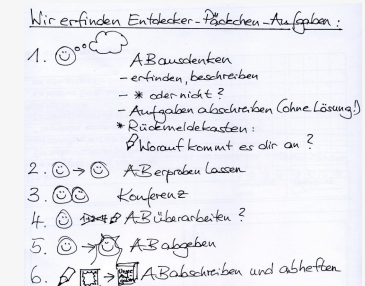 Wir erfinden Entdecker-Päckchen-Aufgaben:
1. AB ausdenken
- erfinden, beschreiben
- * oder nicht?
- Aufgaben abschreiben (ohne Lösung!)
* Rückmeldekasten:
Worauf kommt es dir an?
2. → AB erproben lassen
3. Konferenz
4. AB überarbeiten?
5. → AB abgeben
6. → AB abschreiben und abheften